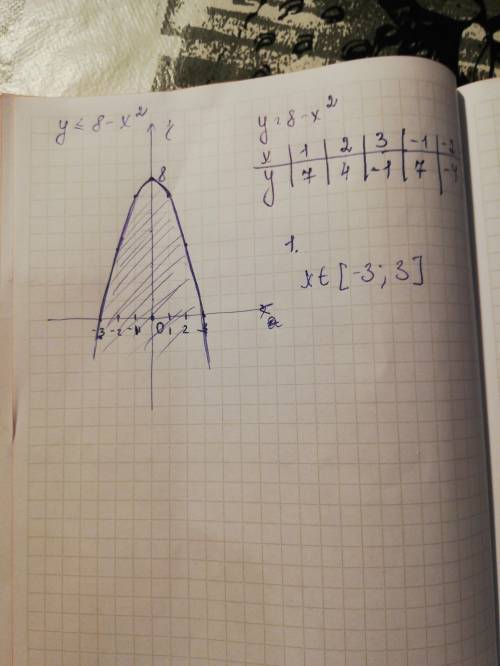 y ≤ 8 - x²
y = 8 - x²
x | 1 | 2 | 3 | -1 | -2
y | 7 | 4 | -1 | 7 | -4
8
1.
x ∈ [-3; 3]
-3 -2 -1 0 1 2 x